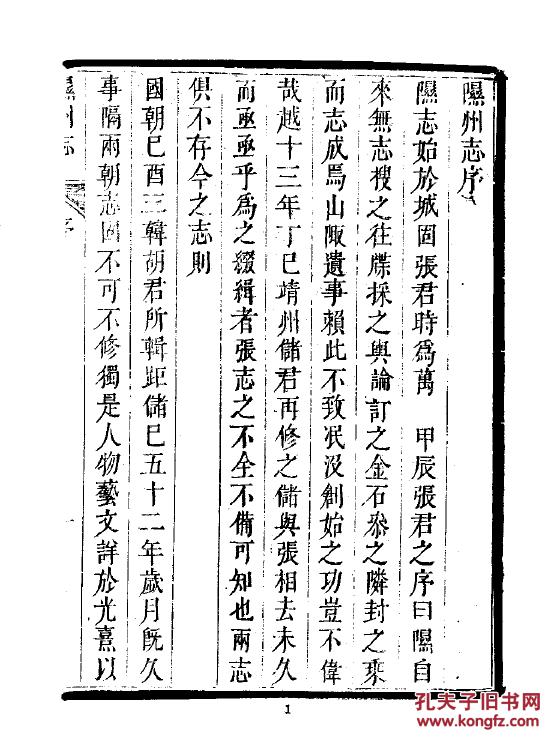 隰州志序
隰志始於城固張君時爲萬 甲辰張君之序曰隰自
來無志搜之往牒採之輿論訂之金石叅之隣封之乘
而志成焉山陬遺事賴此不致泯沒創始之功豈不偉
哉越十三年丁巳靖州儲君再修之儲與張相去未久
而亟亟乎爲之綴緝者張志之不全不備可知也兩志
俱不存今之志則
國朝己酉三韓胡君所輯距儲已五十二年歲月旣久
事隔兩朝志固不可不修獨是人物藝文詳於光熹以
隰州志
序
一
1
孔夫子旧书网
www.kongfz.com